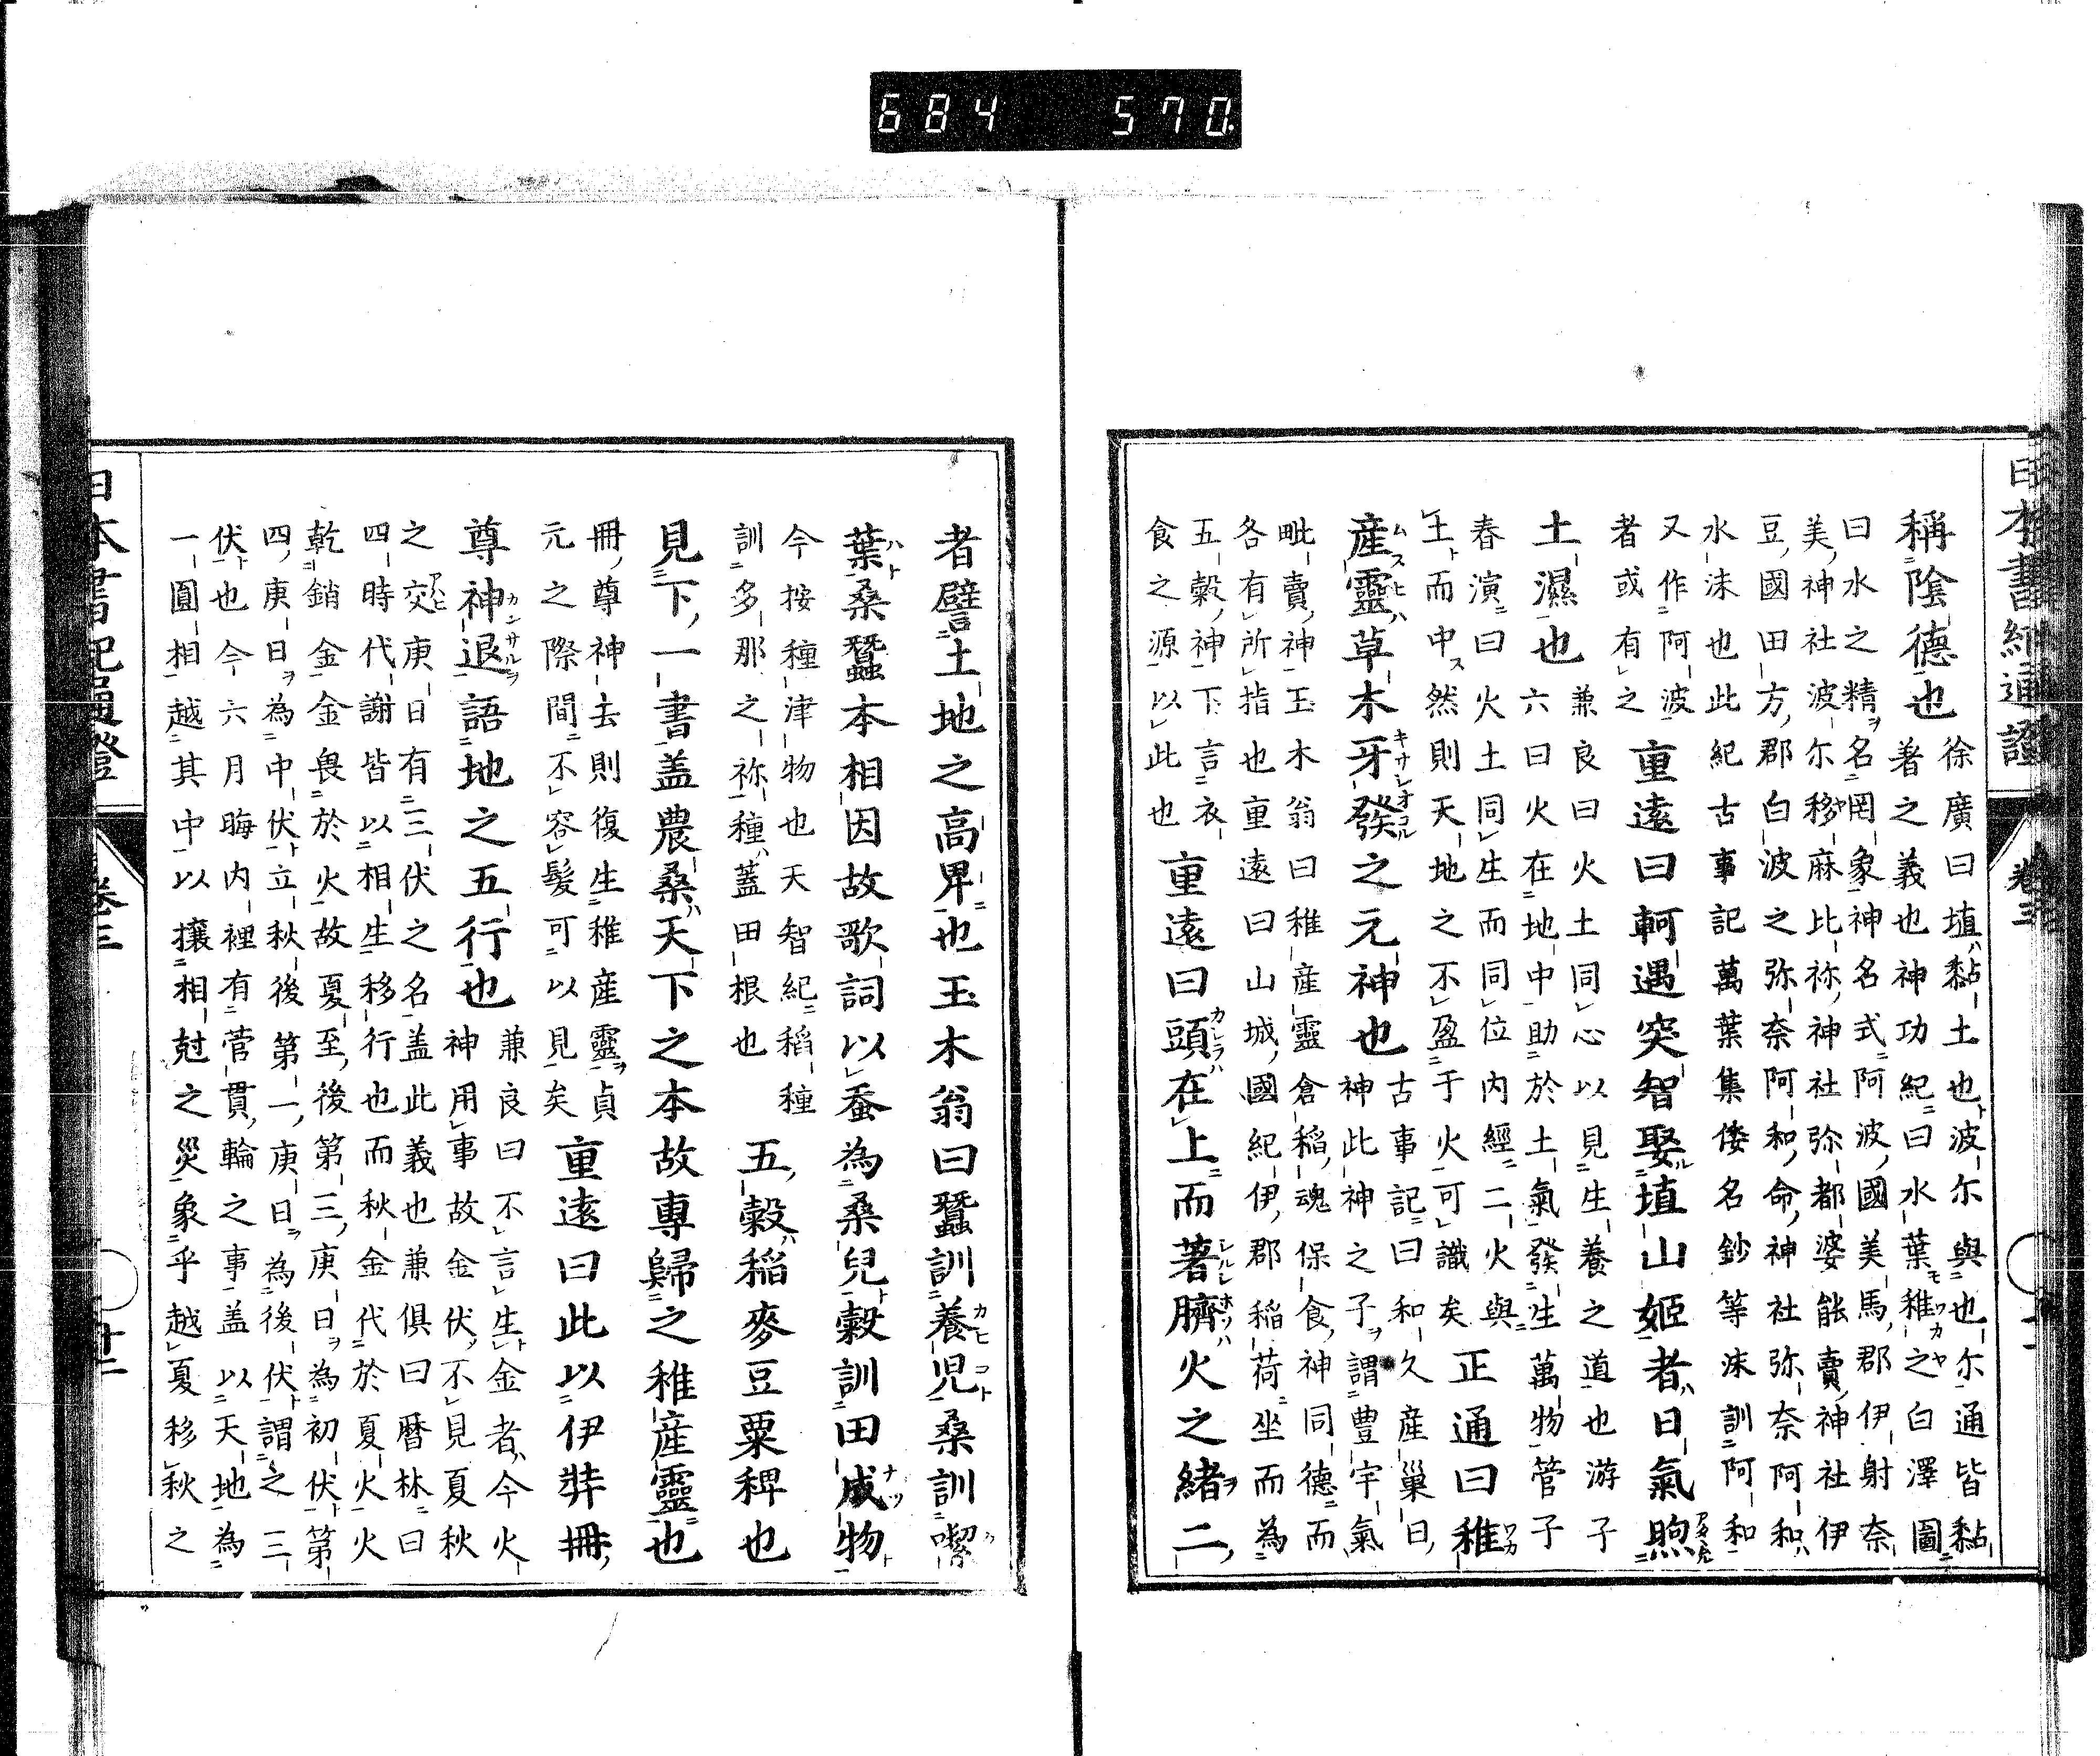 684 570
日本書紀通證
卷三
稱陰德也
徐廣曰埴黏土也波尓與也尓通皆黏
著之義也神功紀曰水葉稚之白澤圖
曰水之精名罔象神名式阿波國美馬郡伊射奈
美神社波尓移麻比祢神社弥都婆能賣神社伊
豆國田方郡白波之弥奈阿和命神社弥奈阿和
水沫也此紀古事記萬葉集倭名鈔等沫訓阿和
又作阿波
者或有之
重遠曰軻遇突智娶埴山姬者日氣煦
土濕也
兼良曰火土同心以見生養之道也游子
六曰火在地中助於土氣發生萬物管子
春演曰火土同生而同位内經二火與
土而中然則天地之不盈于火可識矣
正通曰稚
産靈草木牙發之元神也
古事記曰和久産巢日
神此神之子謂豊宇氣
毗賣神玉木翁曰稚産靈倉稲魂保食神同德而
各有所指也重遠曰山城國紀伊郡稲荷坐而為
五穀神下言衣
食之源以此也
重遠曰頭在上而著臍火之緒二
者譬土地之高卑也玉木翁曰蠶訓養児桑訓喫
葉桑蠶本相因故歌詞以蚕為桑兒穀訓田成物
今按種津物也天智紀稻種
訓多那之祢種蓋田根也
五穀稲麥豆粟稗也
見下一書盖農桑天下之本故專歸之稚産靈也
冊尊神去則復生稚産靈貞
元之際間不容髮可以見矣
重遠曰此以伊弉冊
尊神退語地之五行也
兼良曰不言生金者今火
神用事故金伏不見夏秋
之交庚日有三伏之名盖此義也兼俱曰暦林曰
四時代謝皆以相生移行也而秋金代於夏火火
乾銷金金畏於火故夏至後第三庚日為初伏第
四庚日為中伏立秋後第一庚日為後伏謂之三
伏也今六月晦内裡有菅貫輪之事盖以天地為
一圓相越其中以攘相尅之災象乎越夏移秋之
日本書紀通證
卷三